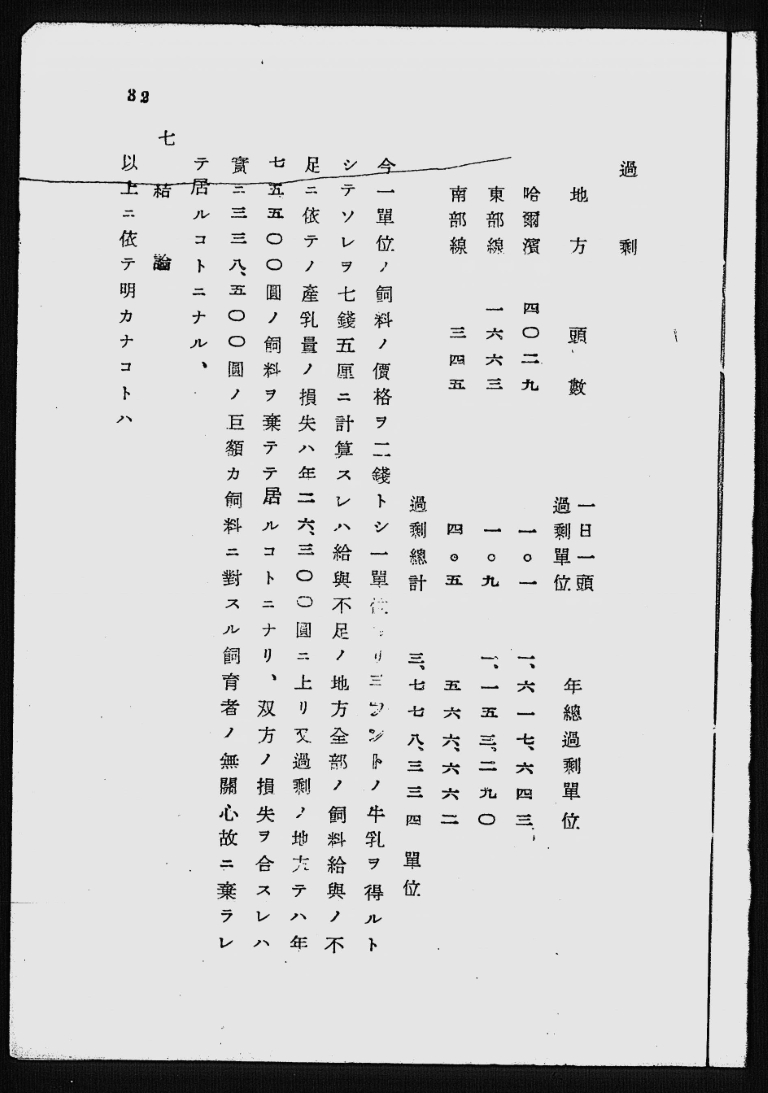 過剩
地方 頭數 一日一頭過剩單位 年總過剩單位
哈爾濱 四〇二九 一。一 一、六一七、六四三
東部線 一六六三 一。九 一、一五三、二九〇
南部線 三四五 四。五 五六六、六六二
過剩總計 三、七七八、三三四 單位
今一單位ノ飼料ノ價格ヲ二錢トシ一單位ヨリ三フントノ牛乳ヲ得ルト
シテソレヲ七錢五厘ニ計算スレハ給與不足ノ地方全部ノ飼料給與ノ不
足ニ依テノ產乳量ノ損失ハ年二六、三〇〇圓ニ上リ又過剩ノ地方テハ年
七五五〇〇圓ノ飼料ヲ棄テテ居ルコトニナリ、双方ノ損失ヲ合スレハ
實ニ三三八、五〇〇圓ノ巨額カ飼料ニ對スル飼育者ノ無關心故ニ棄ラレ
テ居ルコトニナル、
七 結論
以上ニ依テ明カナコトハ
32